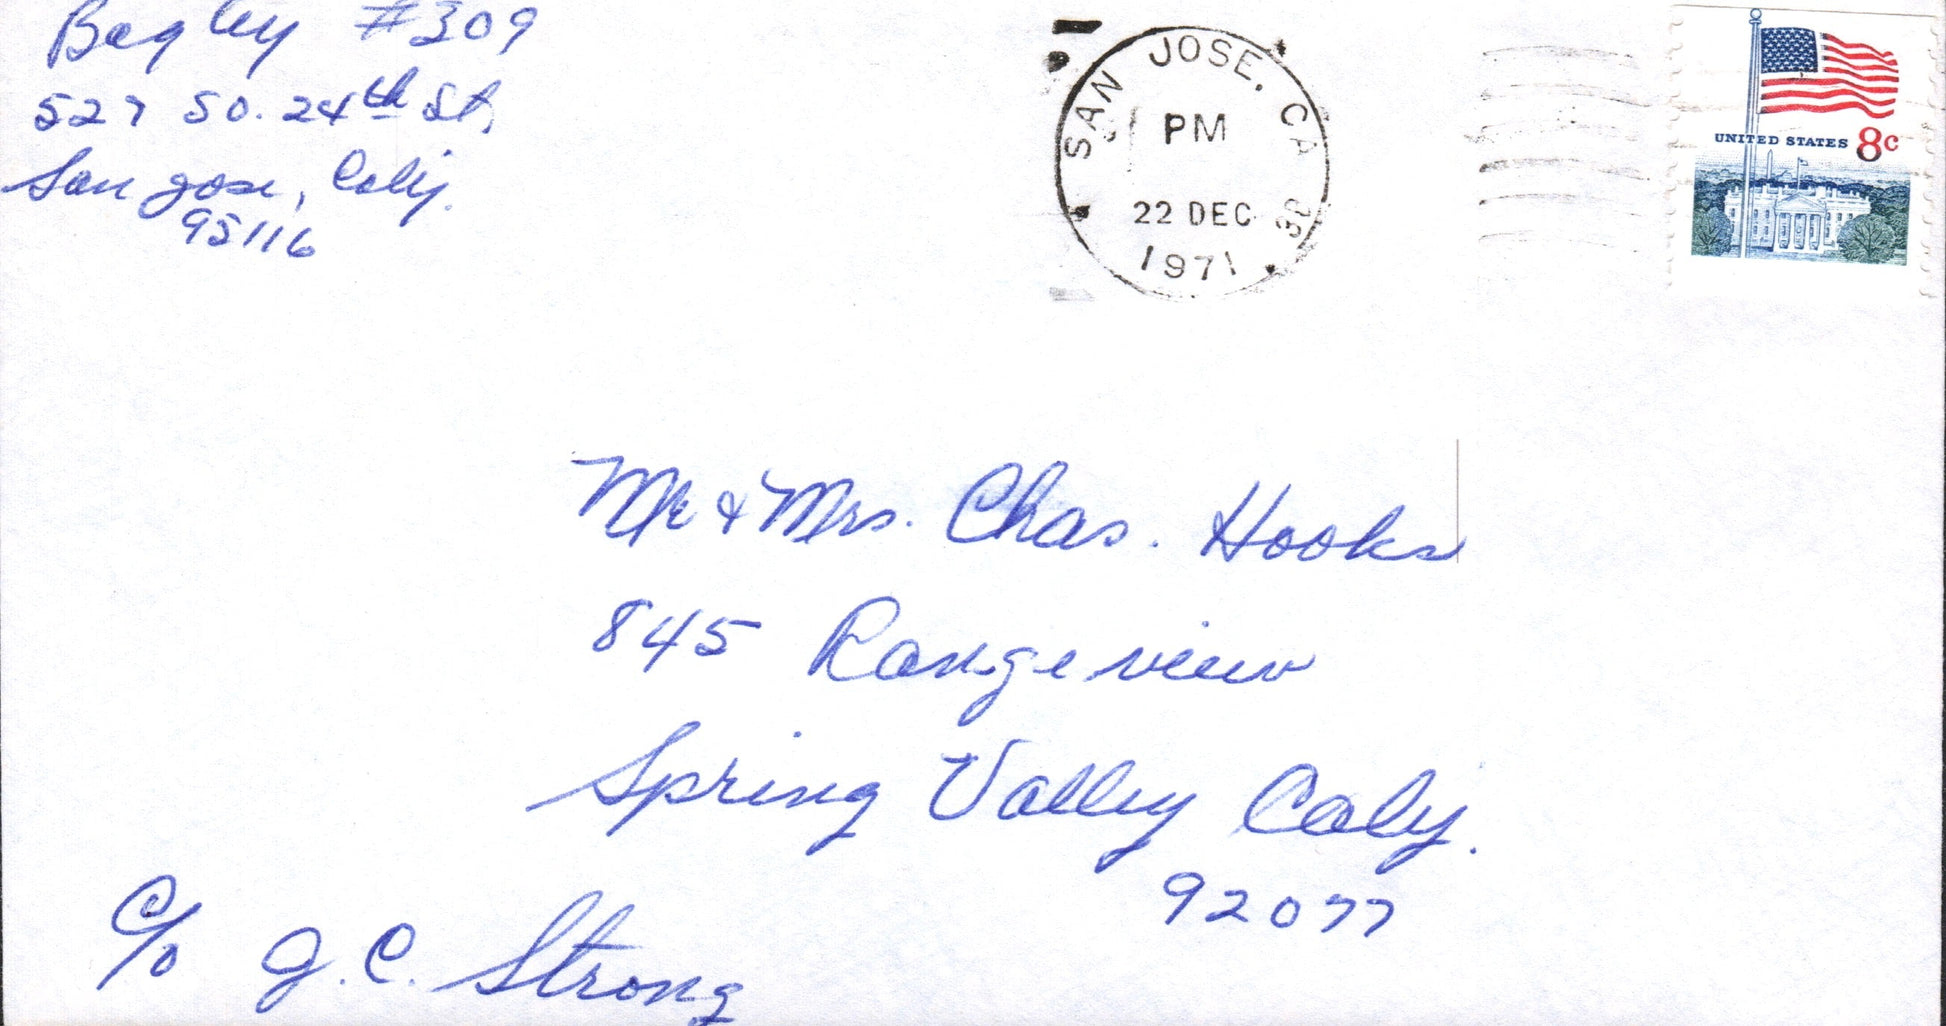 Bagley #309
527 So. 24th St.
San Jose, Calif.
95116
SAN JOSE, CA
PM
22 DEC
1971
UNITED STATES 8c
Mr & Mrs. Chas. Hooks
845 Rangeview
Spring Valley Calif.
92077
c/o J.C. Strong